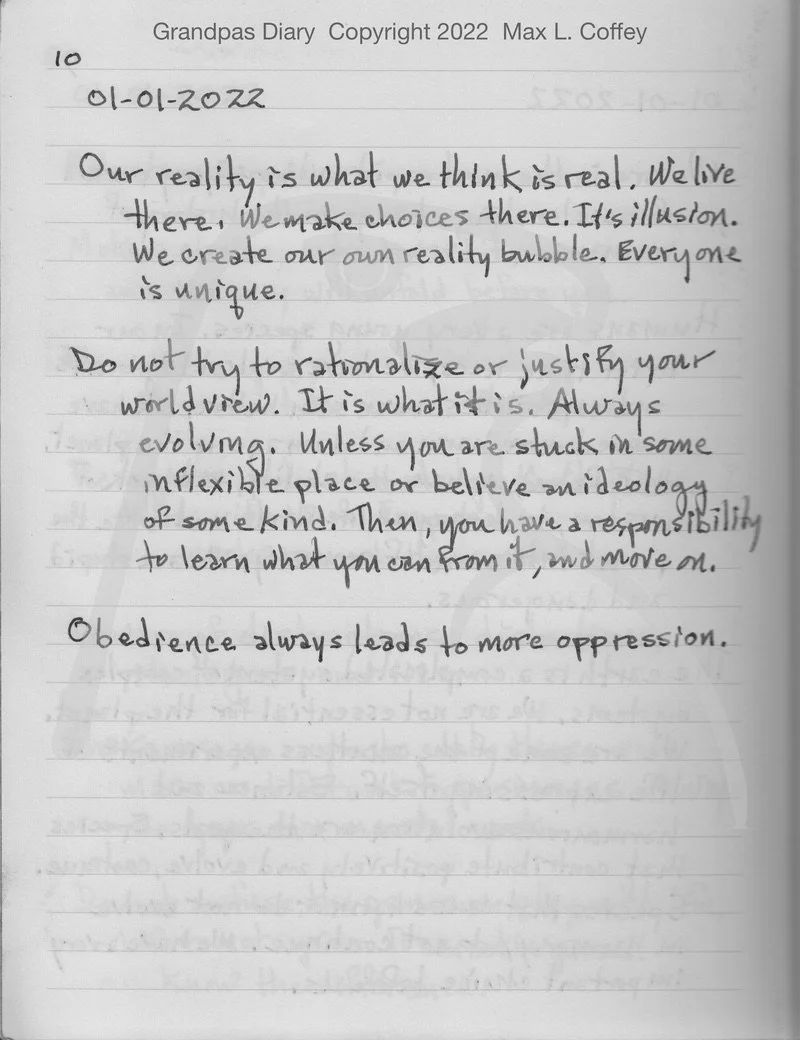 Grandpas Diary Copyright 2022 Max L. Coffey
10
01-01-2022
Our reality is what we think is real. We live
there. We make choices there. It's illusion.
We create our own reality bubble. Everyone
is unique.
Do not try to rationalize or justify your
world view. It is what it is. Always
evolving. Unless you are stuck in some
inflexible place or believe an ideology
of some kind. Then, you have a responsibility
to learn what you can from it, and move on.
Obedience always leads to more oppression.